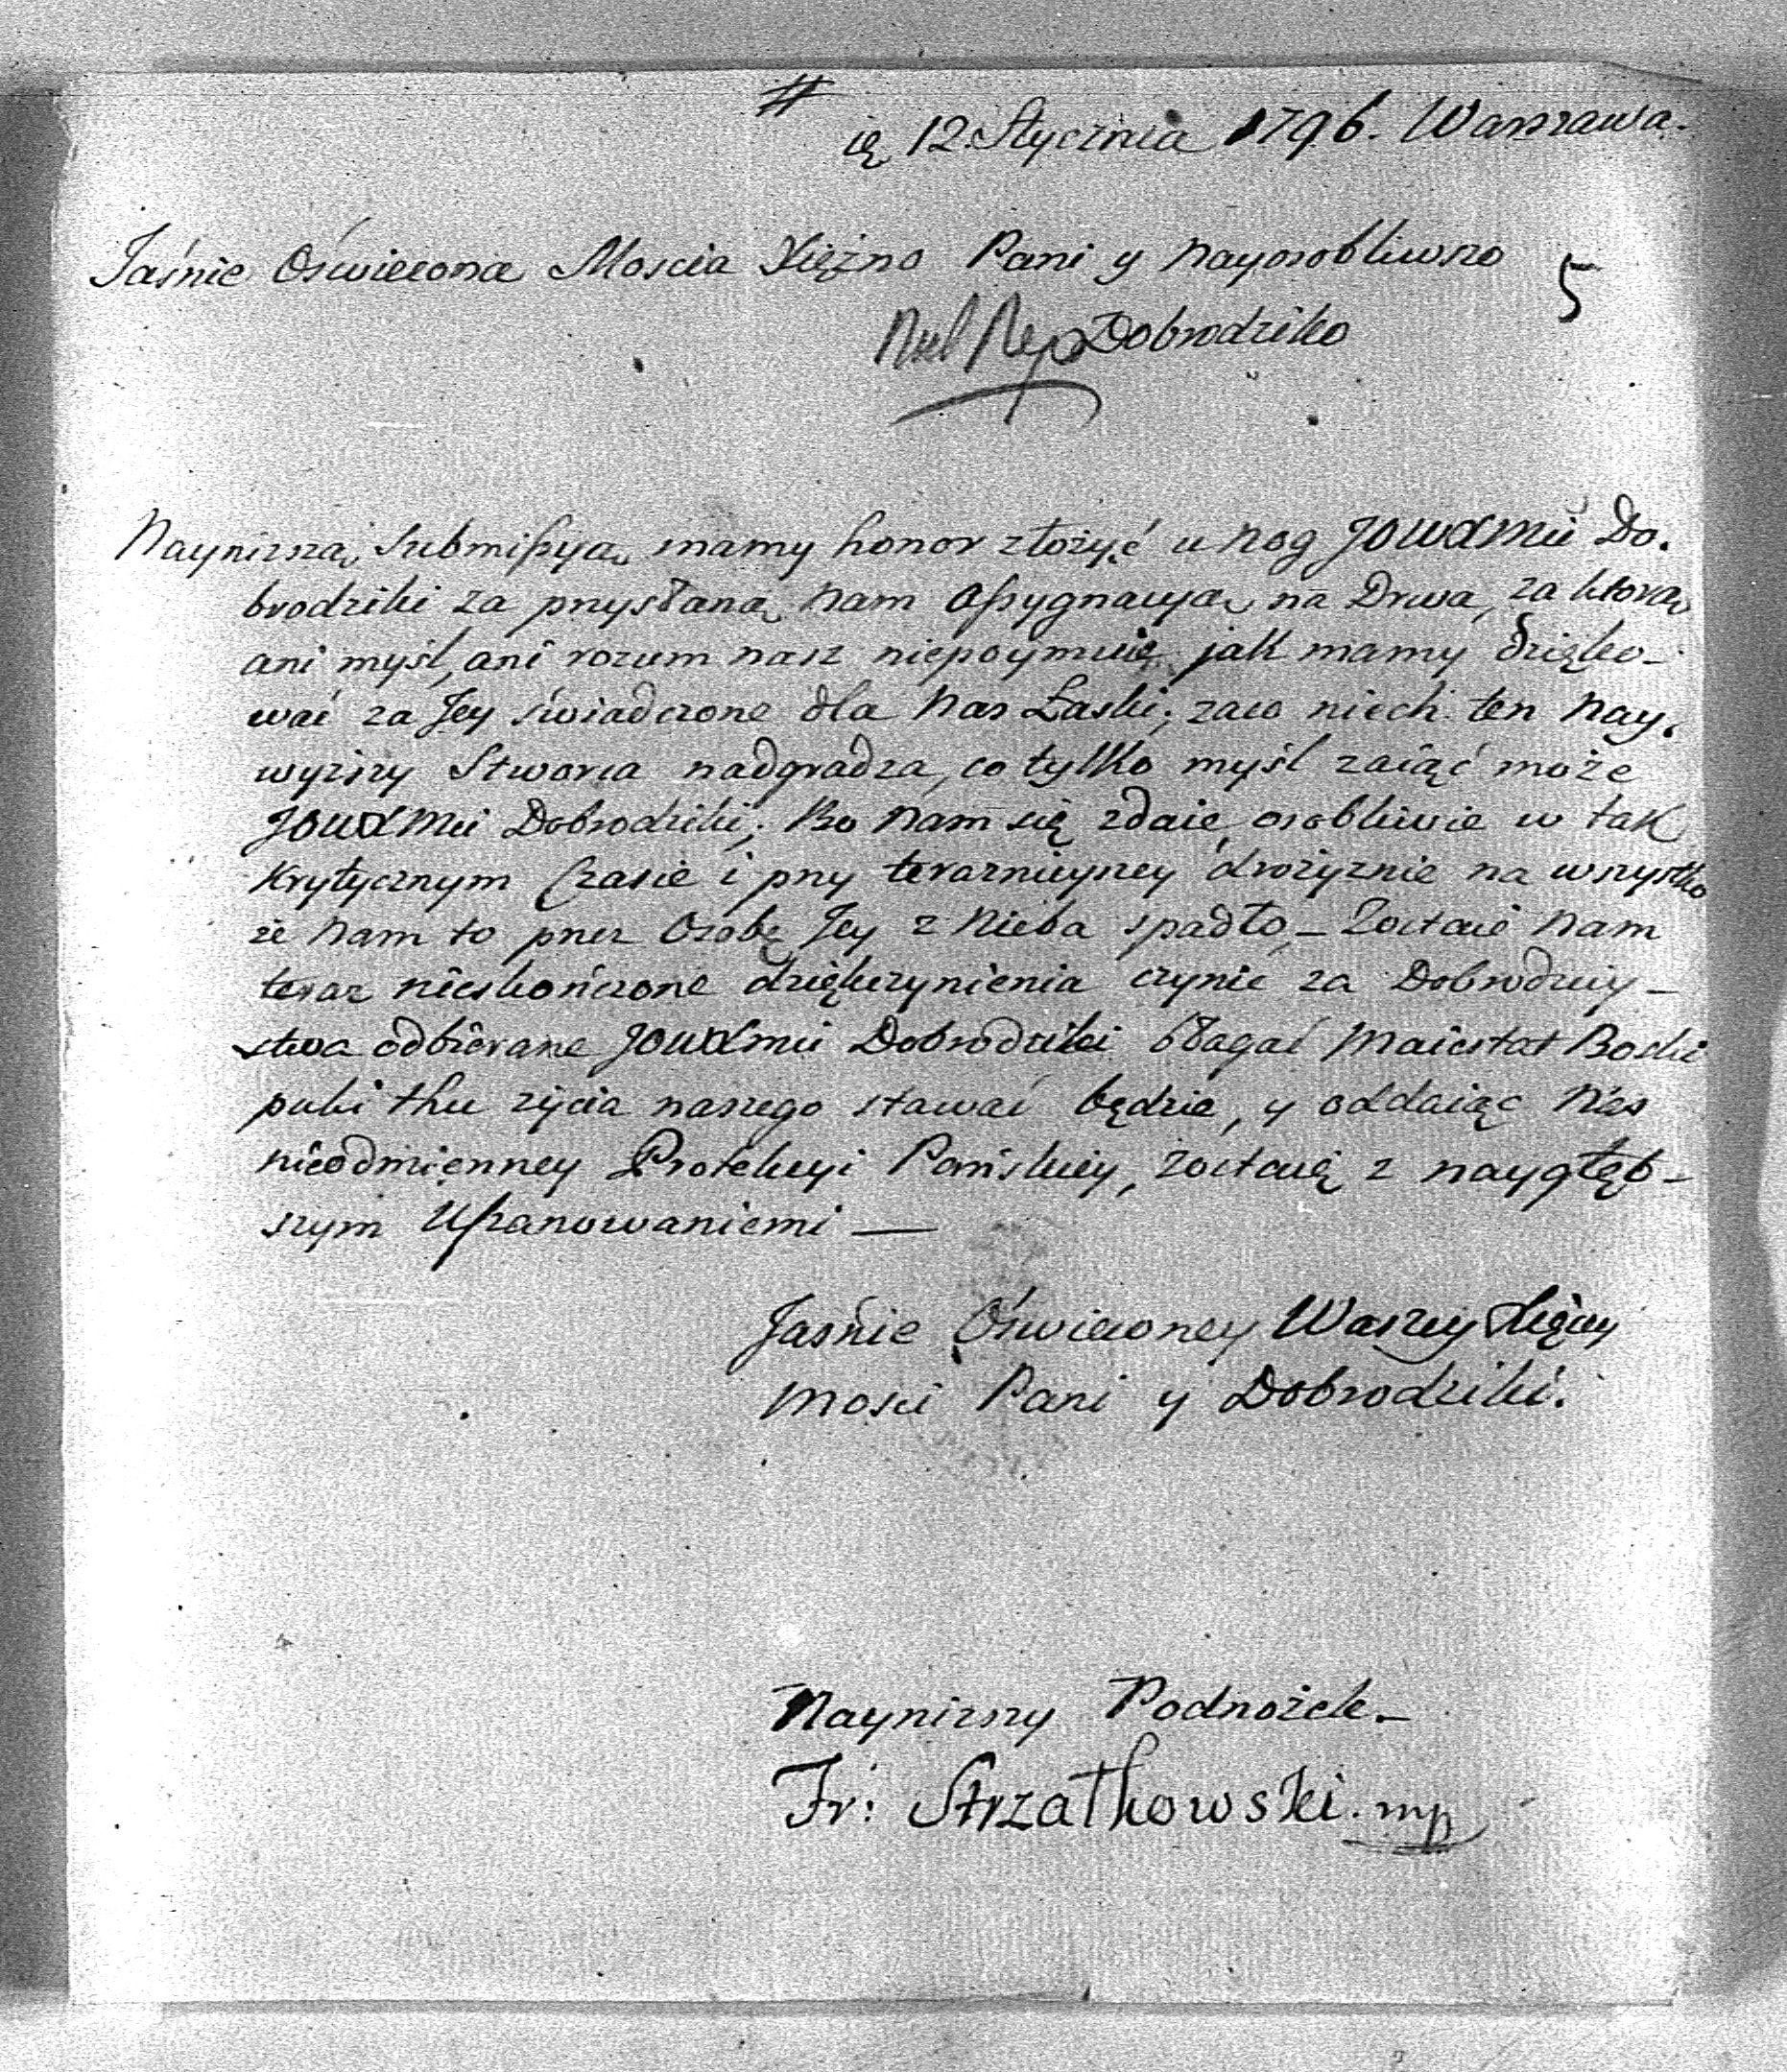 #
12. Stycznia 1796. Warszawa.
Jaśnie Oświecona Moscia Xiężno Pani y nayosobliwszo
5
Dobrodziko
Nayniższą Submißyą mamy honor złożyć u nog JOWXMci Do.
brodziki za przysłaną nam aßygnacyą na Drwa, za ktorą
ani myśl, ani rozum nasz niepoymuie jak mamy dzięko-
wać za Jey świadczone dla Nas Łaski; zaco niech ten Nay.
wyższy Stworca nadgradza, co tylko myśl zaiąć może
JOWXMci Dobrodziki; Bo nam się zdaie, osobliwie w tak
Krytycznym Czasie i przy teraznieyszey drożyznie na wszystko
że Nam to przez Osobę Jey z Nieba spadło – Zostaie Nam
teraz nieskończone dziękczynienia czynic za Dobrodziey-
stwa odbierane JOWXMci Dobrodziki błagać Maiestat Boski
puki tku życia naszego stawać będzie, y oddaiąc Nas
nieodmienney Protekcyi Pańskiey, zostaię z naygłęb-
szym Ußanowaniemi —
Jaśnie Oświeconey Waszey Xięcey
Mosci Pani y Dobrodziki.
Nayniższy Podnożek –
Fr: Strzałkowski. mp